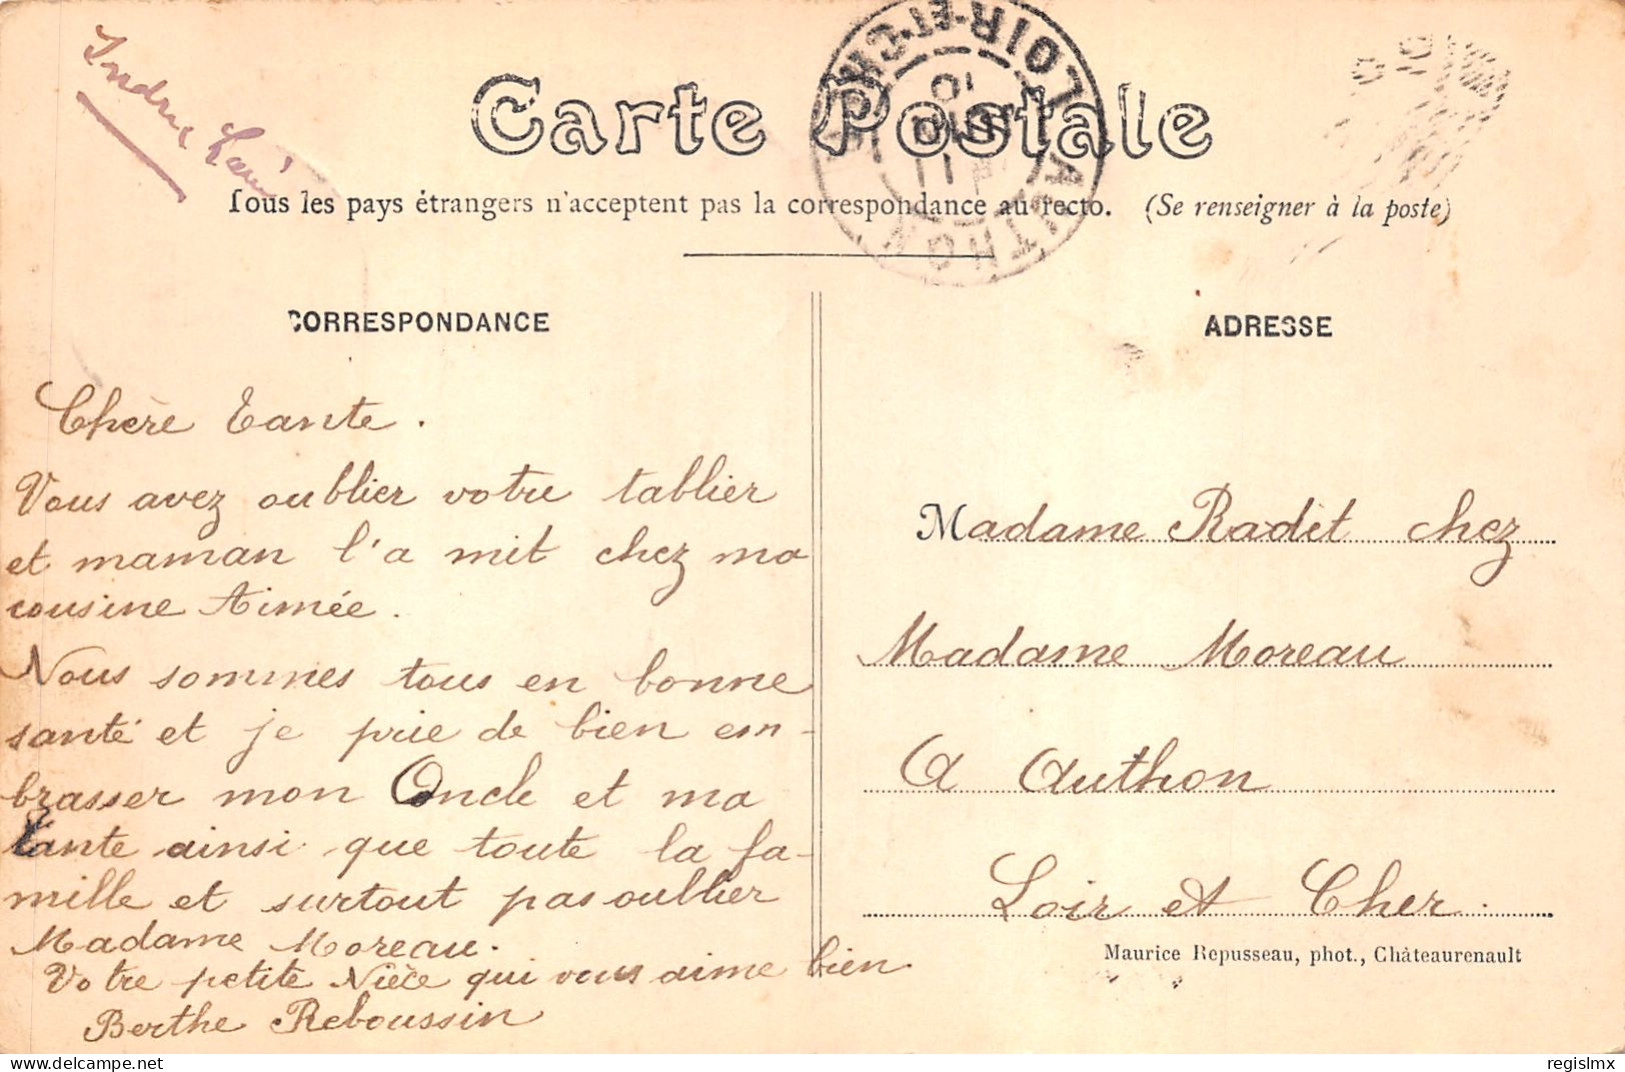 Indre
Carte Postale
LOIR-ET-CHER
10
11
AUTHON
Tous les pays étrangers n'acceptent pas la correspondance au recto. (Se renseigner à la poste)
CORRESPONDANCE
Chère Tante.
Vous avez oublier votre tablier
et maman l'a mit chez ma
cousine Aimée.
Nous sommes tous en bonne
santé et je prie de bien em-
brasser mon Oncle et ma
tante ainsi que toute la fa-
mille et surtout pas oublier
Madame Moreau.
Votre petite Nièce qui vous aime bien
Berthe Reboussin
ADRESSE
Madame Radet chez
Madame Moreau
A Authon
Loir et Cher.
Maurice Repusseau, phot., Châteaurenault
www.delcampe.net
regislmx